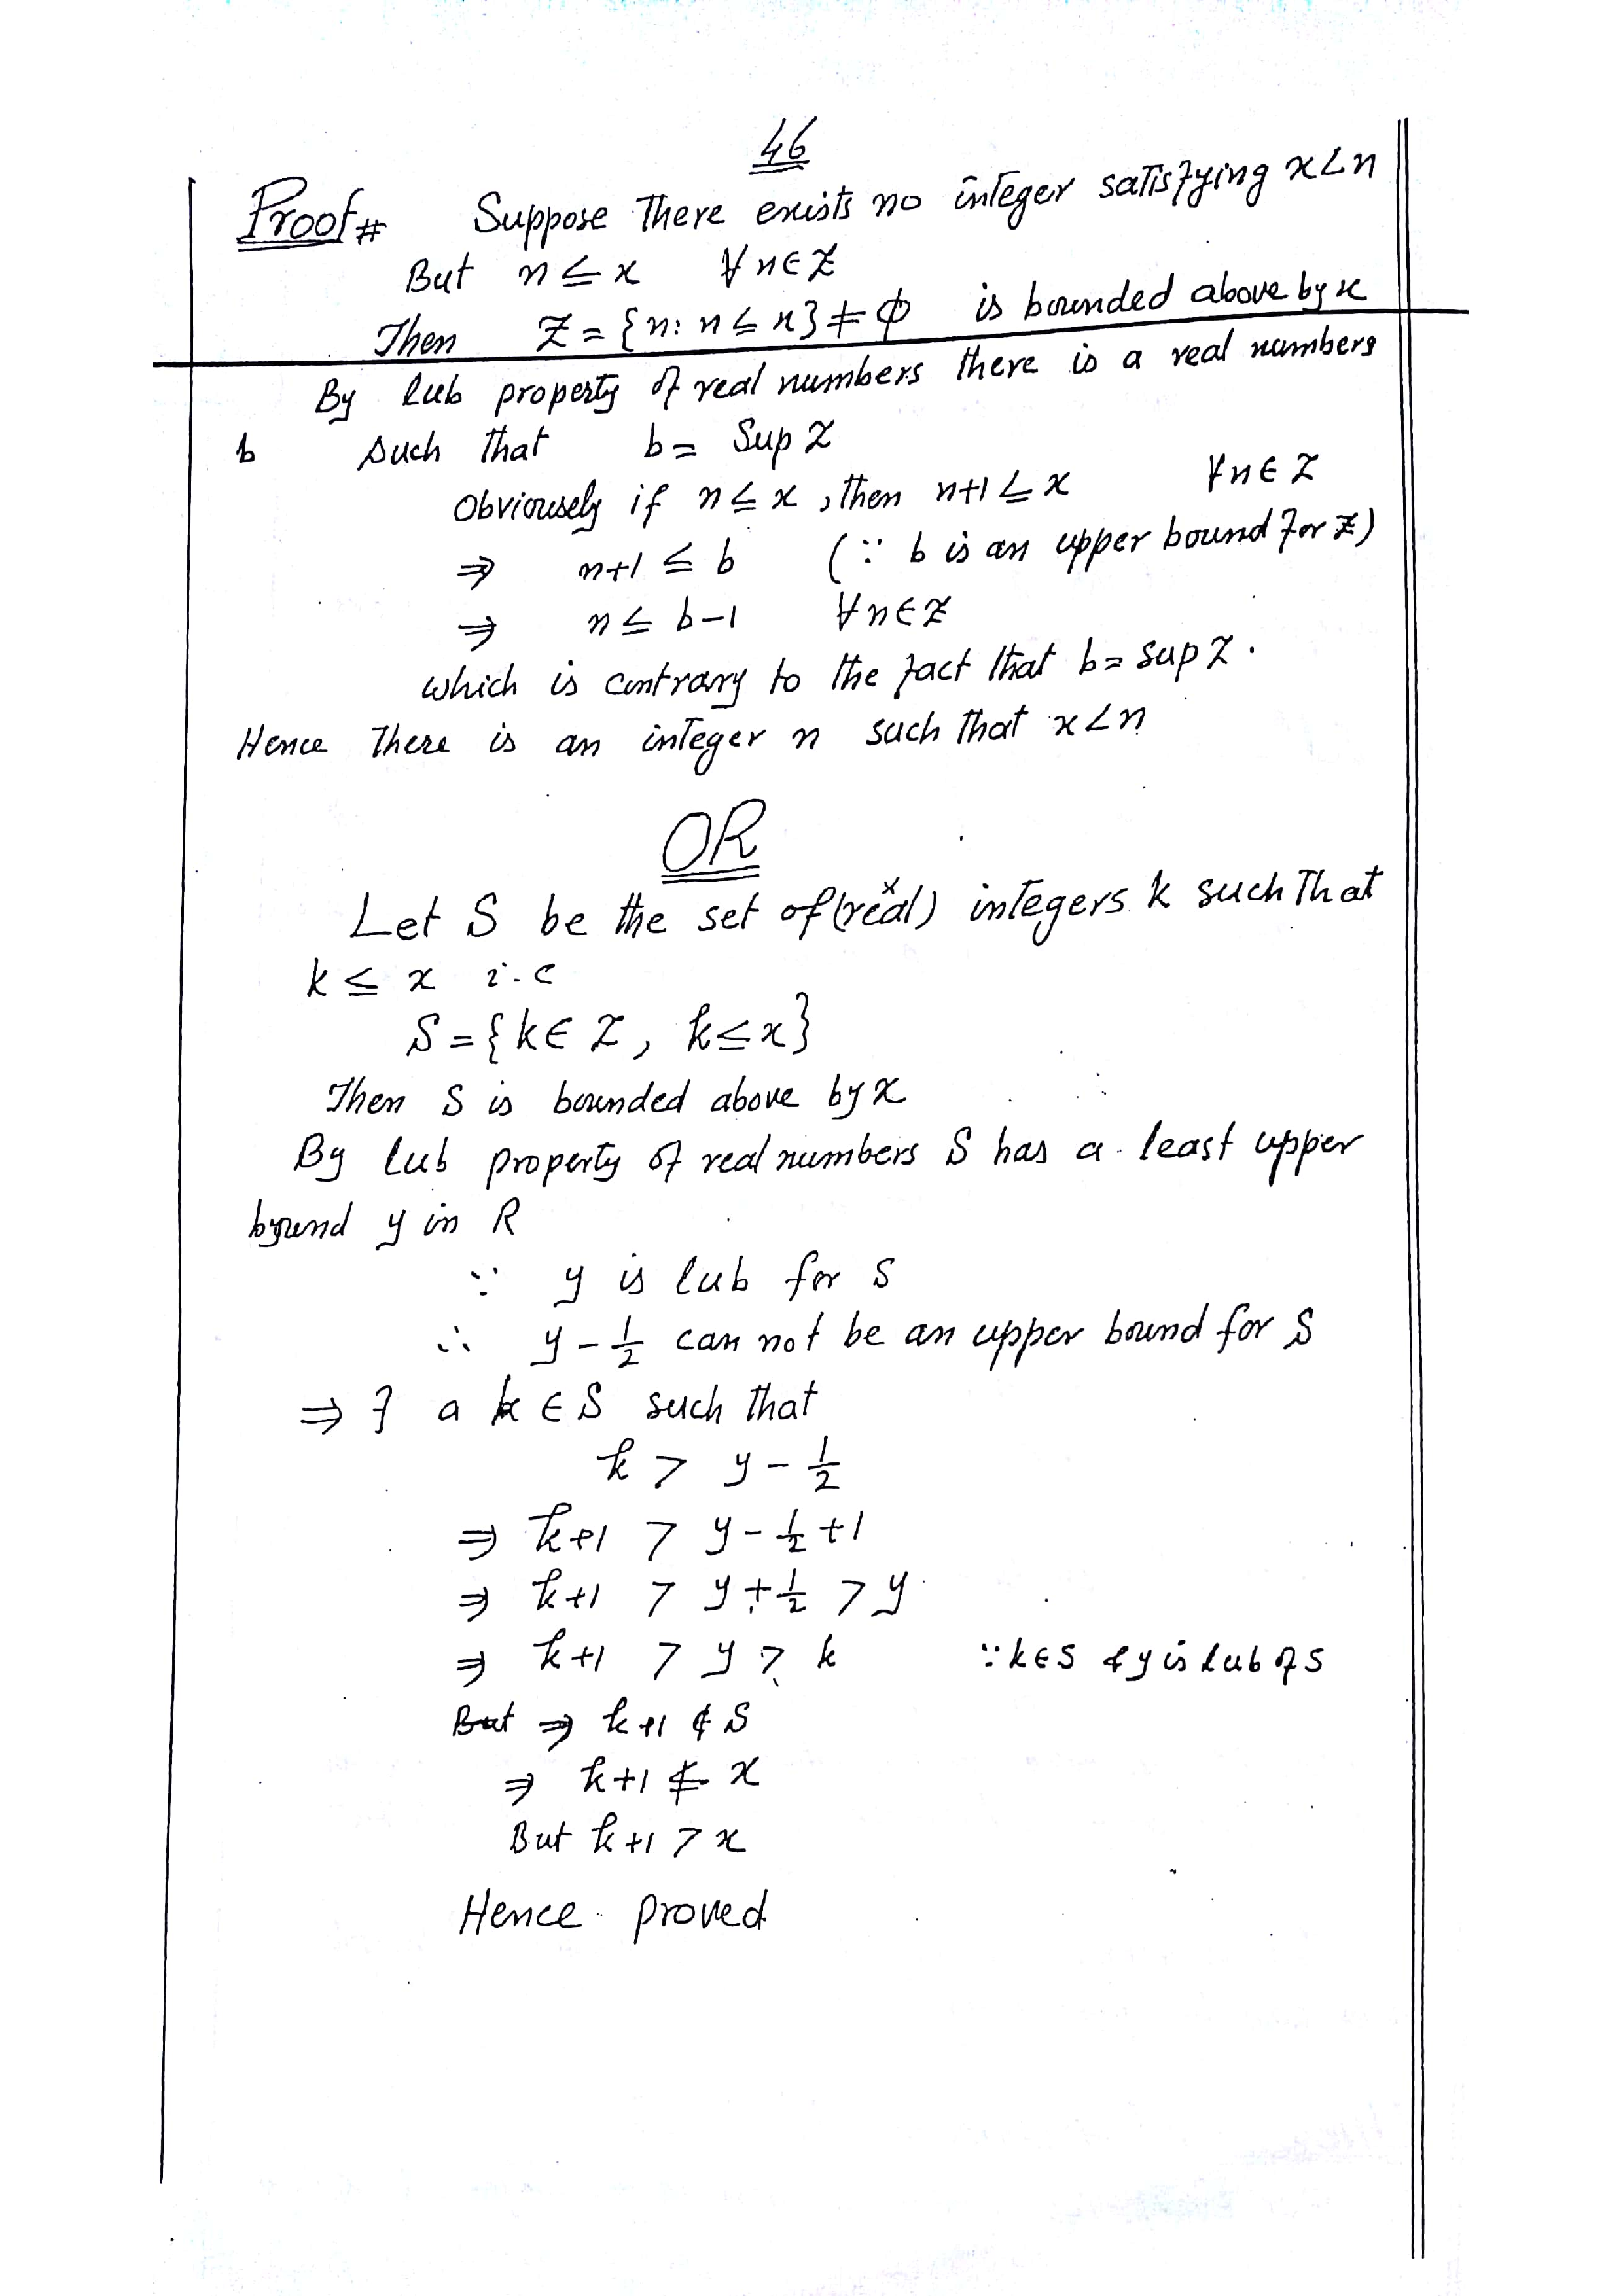 46
Proof # Suppose There exists no integer satisfying x<n
But n ≤ x ∀ n∈Z
Then Z = {n: n ≤ x} ≠ ϕ is bounded above by x
By lub property of real numbers there is a real numbers
b such that b = Sup Z
Obviously if n ≤ x , then n+1 ≤ x ∀ n ∈ Z
⇒ n+1 ≤ b (∵ b is an upper bound for Z)
⇒ n ≤ b-1 ∀ n∈Z
which is contrary to the fact that b = sup Z.
Hence There is an integer n such that x<n
OR
Let S be the set of (real) integers k such that
k ≤ x i.e
S = {k ∈ Z, k ≤ x}
Then S is bounded above by x
By lub property of real numbers S has a least upper
bound y in R
∵ y is lub for S
∴ y - 1/2 can not be an upper bound for S
⇒ ∃ a k ∈ S such that
k > y - 1/2
⇒ k+1 > y - 1/2 + 1
⇒ k+1 > y + 1/2 > y
⇒ k+1 > y ≥ k ∵ k∈S & y is lub of S
But ⇒ k+1 ∉ S
⇒ k+1 ≰ x
But k+1 > x
Hence proved